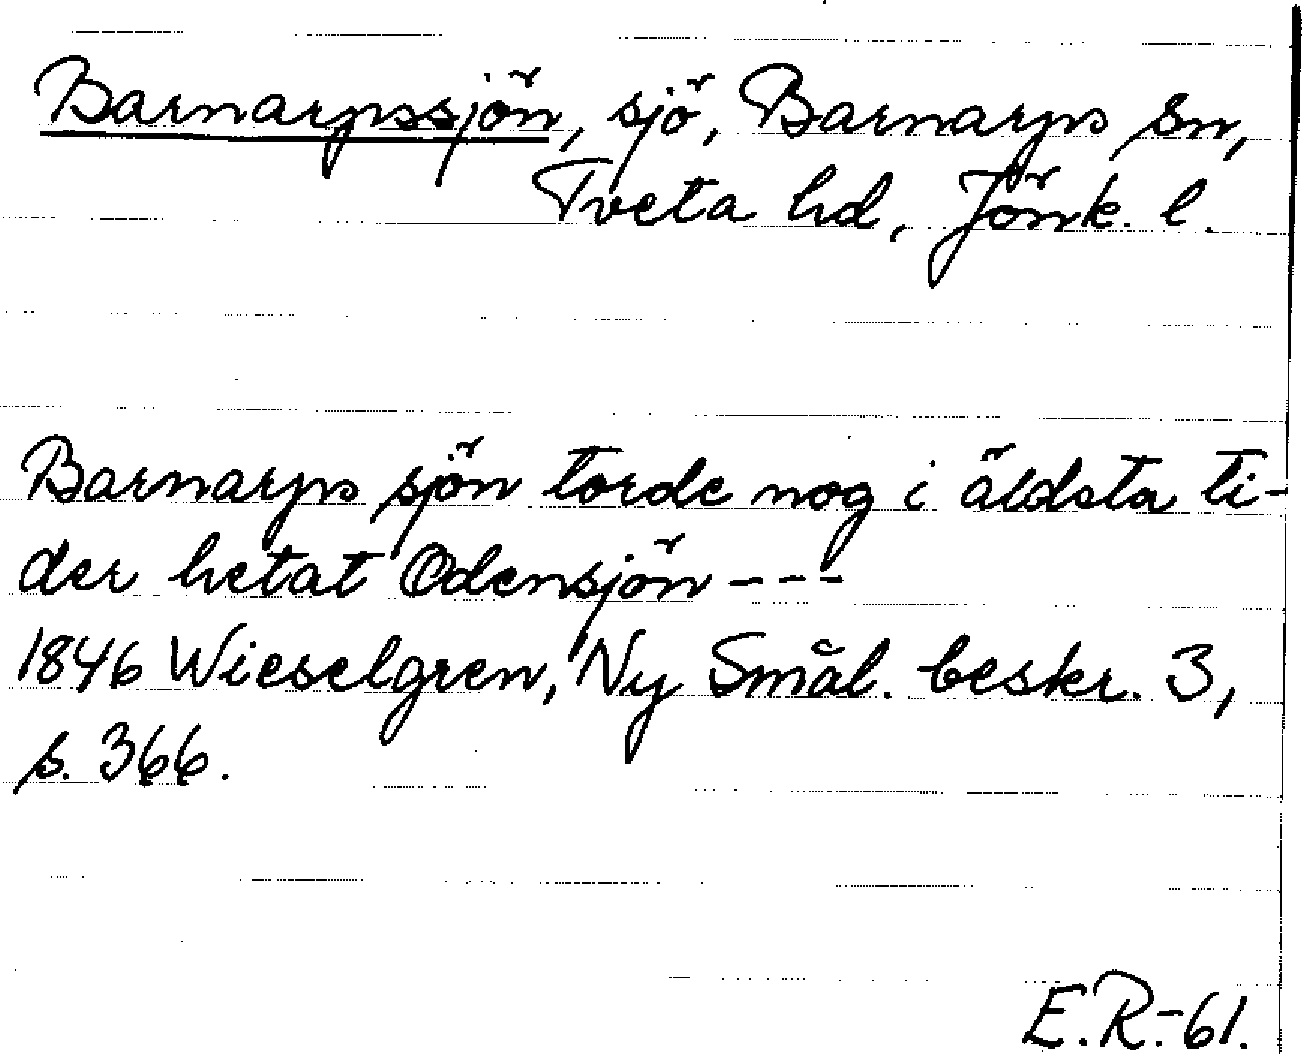 Barnarpssjön, sjö, Barnarps sn,
Tveta hd, Jönk. l.
Barnarps sjön torde nog i äldsta ti-
der hetat Odensjön - - -
1846 Wieselgren, Ny Smål. beskr. 3,
s. 366.
E.R.-61.